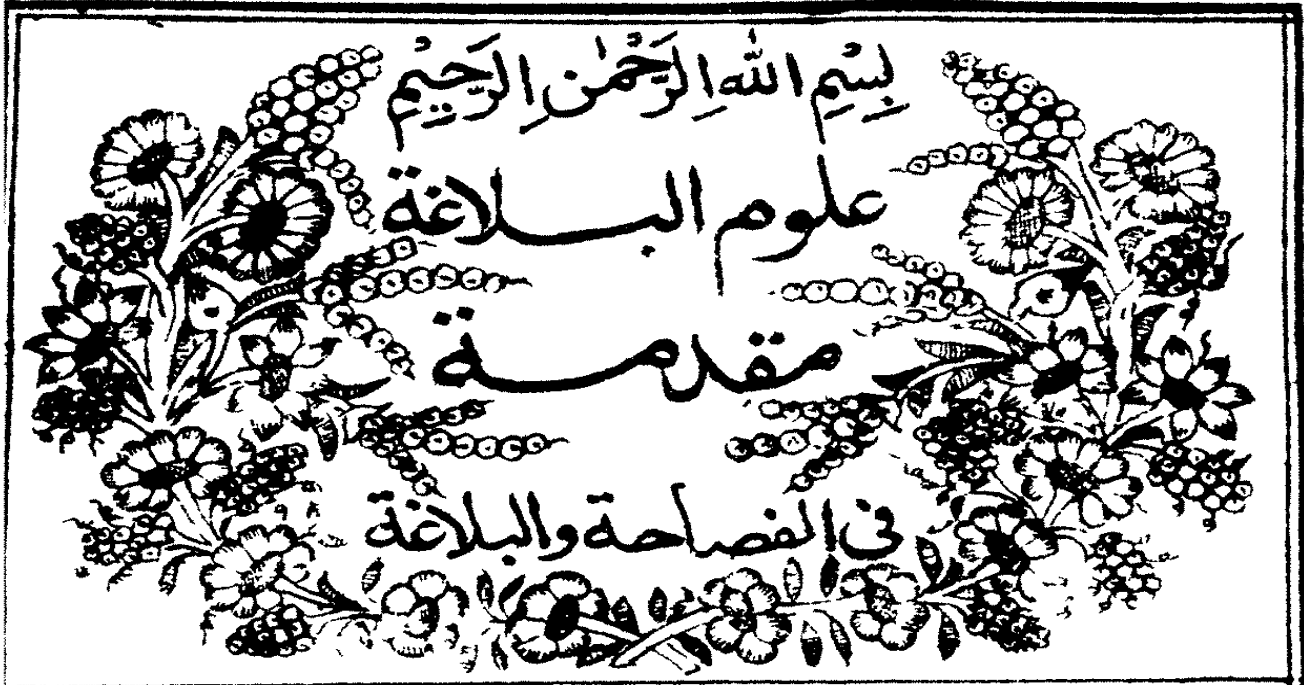 بِسْمِ اللهِ الرَّحْمٰنِ الرَّحِيْمِ
علوم البـلاغة
مقدمـة
فى الفصاحة والبلاغة